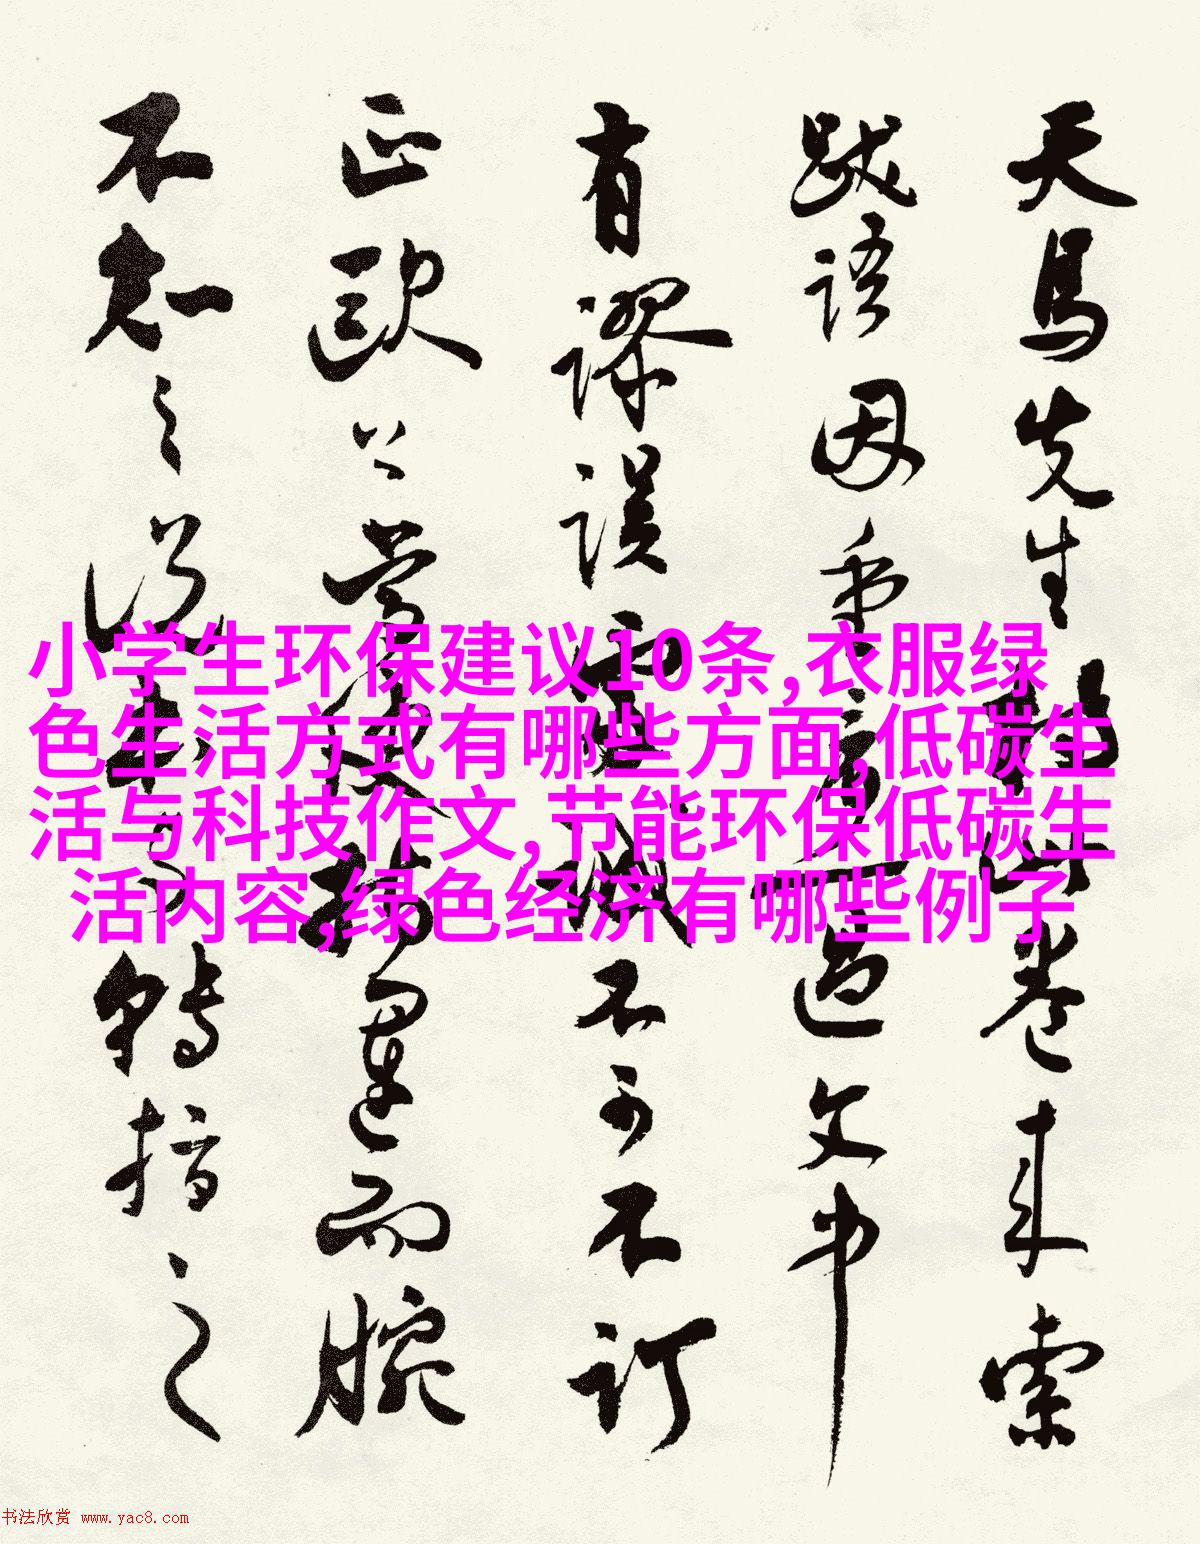 天馬先生
卷来索
跋语因重
过文中
有谬误
不可不订
正欧公
运而腕
不知之说
转指之
小学生环保建议10条,衣服绿
色生活方式有哪些方面,低碳生
活与科技作文,节能环保低碳生
活内容,绿色经济有哪些例子
书法欣赏 www.yac8.com